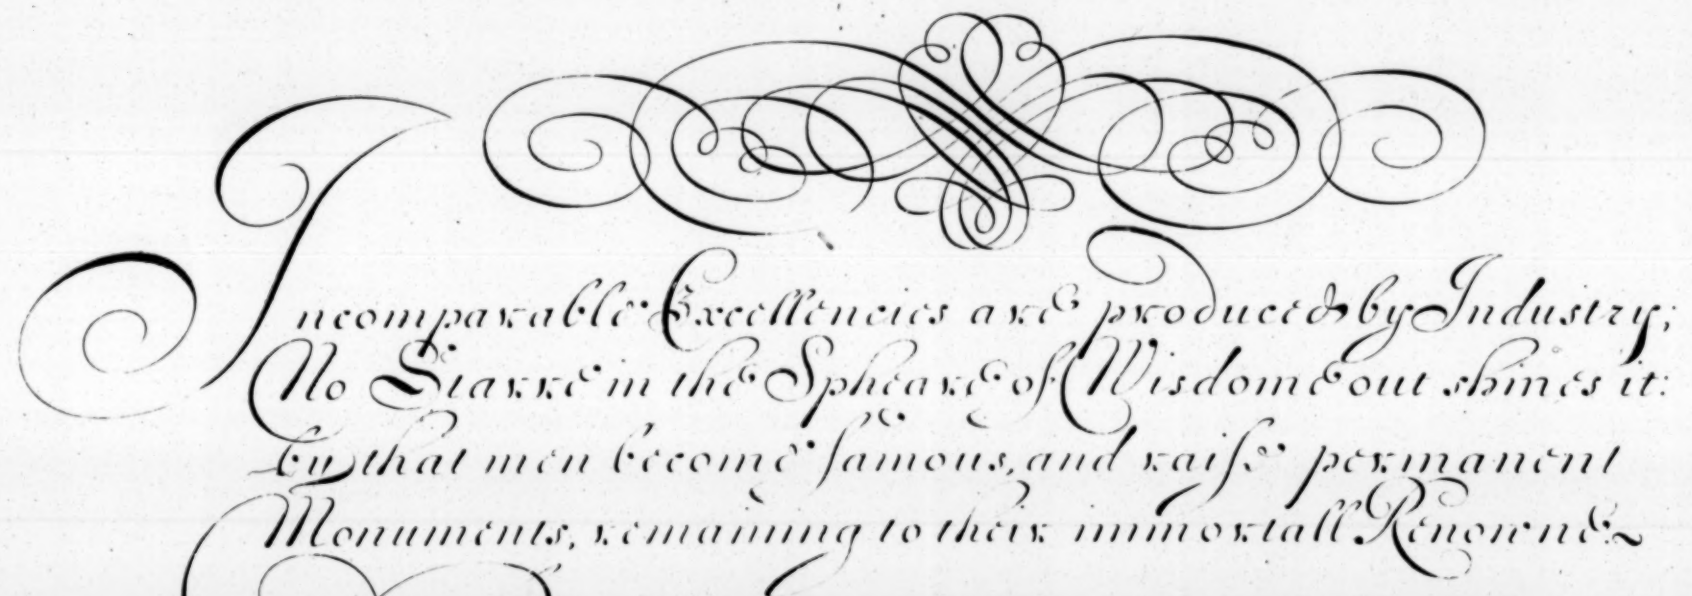 Incomparable Excellencies are produced by Industry;
No Starre in the Spheare of Wisdome out shines it:
by that men become famous, and raise permanent
Monuments, remaining to their immortall Renowne.